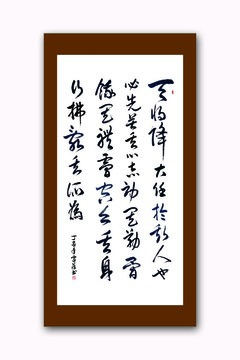 天將降大任於斯人也
必先苦其心志勞其筋骨
餓其體膚空乏其身
行拂亂其所為